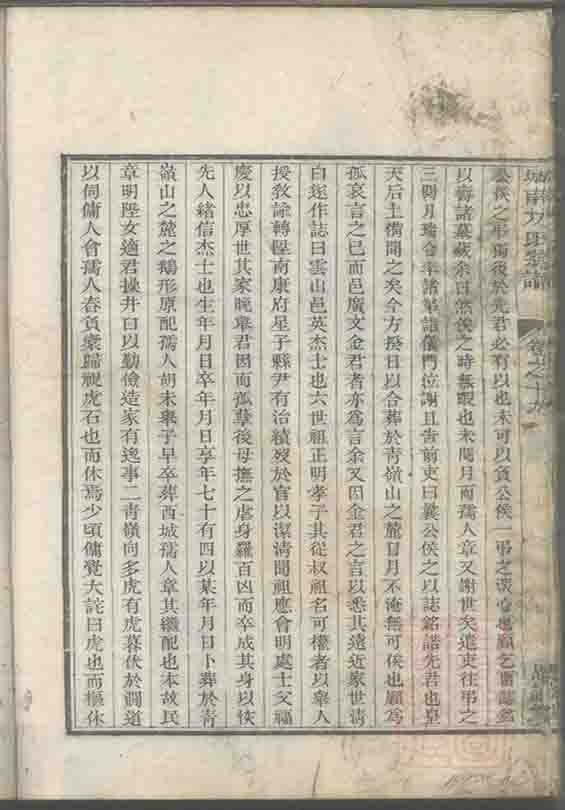 城南方氏宗譜
卷之十九
公侯之弔獨後於先君必有以也未可以負公侯一弔之談心也願乞書誌銘
以壽諸墓歲余曰然俟之時無暇也未閱月而孺人章又謝世矣遣吏往弔之
三閱月瑞合率諸弟詣儀門位謝且告前吏曰曩公侯之以誌銘諾先君也皇
天后土備聞之矣今方揆日以合葬於青嶺山之麓日月不淹無可俟也願為
孤哀言之已而邑廣文金君者亦為言余又因金君之言以悉其遠近家世清
白遂作誌曰雲山邑英杰士也六世祖正明孝子其從叔祖名可權者以舉人
授教諭轉陞南康府星子縣尹有治績歿於官以潔清聞祖應會明處士父福
慶以忠厚世其家晚舉君因而孤孽後母撫之虐身罹百凶而卒成其身以恢
先人緒信杰士也生年月日卒年月日享年七十有四以某年月日卜葬於青
嶺山之麓之鵝形原配孺人胡未舉子早卒葬西城孺人章其繼配也本故民
章明陞女適君操井臼以勤儉造家有逸事二青嶺向多虎有虎暮伏於澗道
以伺傭人會孺人春負橐歸視虎石也而休焉少頃傭覺大詫曰虎也而樞休